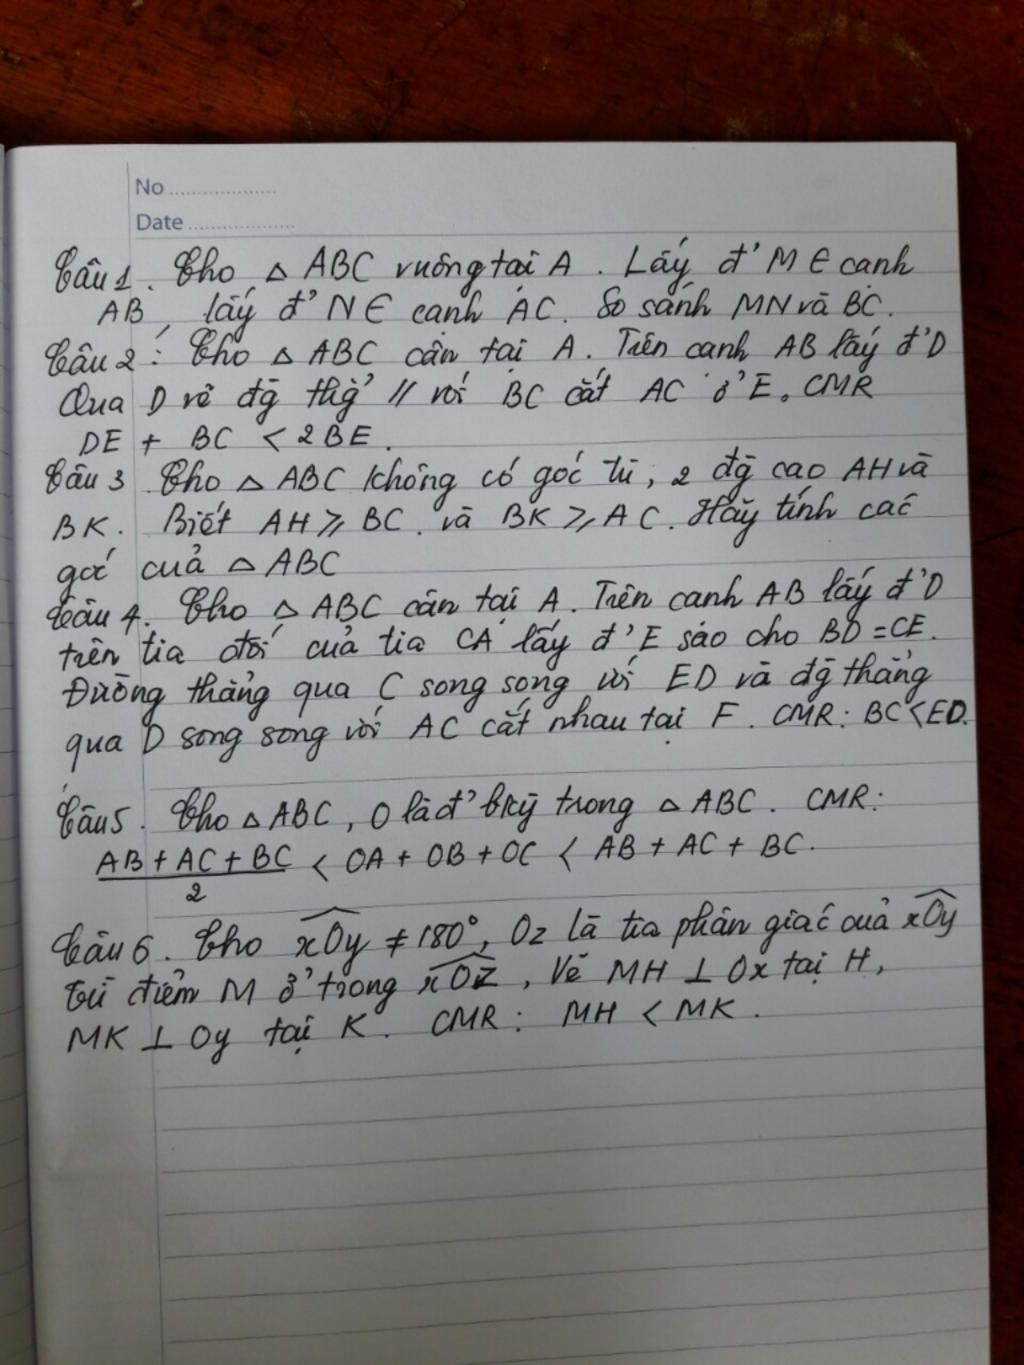 No ....................
Date ....................
Câu 1. Cho △ ABC vuông tại A. Lấy đ' M ∈ cạnh
AB, lấy đ' N ∈ cạnh AC. So sánh MN và BC.
Câu 2: Cho △ ABC cân tại A. Trên cạnh AB lấy đ' D
Qua D vẽ đg thg' // với BC cắt AC ở E. CMR
DE + BC < 2BE.
Câu 3 Cho △ ABC không có góc tù, 2 đg cao AH và
BK. Biết AH ⩾ BC. và BK ⩾ AC. Hãy tính các
góc của △ ABC
Câu 4. Cho △ ABC cân tại A. Trên cạnh AB lấy đ' D
trên tia đối của tia CA lấy đ' E sao cho BD = CE.
Đường thẳng qua C song song với ED và đg thẳng
qua D song song với AC cắt nhau tại F. CMR: BC < ED.
Câu 5. Cho △ ABC, O là đ' bkỳ trong △ ABC. CMR:
AB + AC + BC / 2 < OA + OB + OC < AB + AC + BC.
Câu 6. Cho xOy ≠ 180°, Oz là tia phân giác của xOy
từ điểm M ở trong xOz, Vẽ MH ⊥ Ox tại H,
MK ⊥ Oy tại K. CMR: MH < MK.